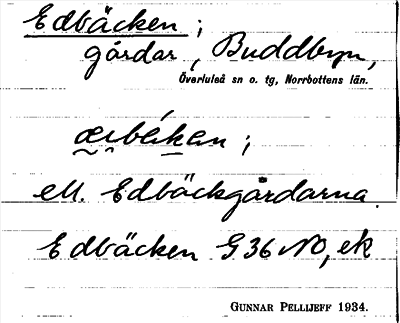 Edbäcken ;
gårdar, Buddbyn,
Överluleå sn o. tg, Norrbottens län.
æɩbékən ;
ell. Edbäckgårdarna.
Edbäcken G36 NO, ek
GUNNAR PELLIJEFF 1934.